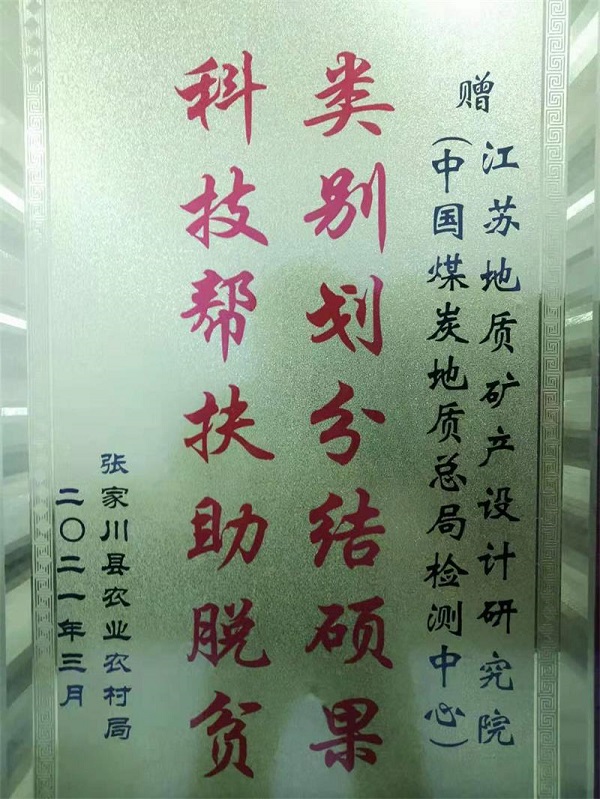 赠
江苏地质矿产设计研究院
(中国煤炭地质总局检测中心)
类别划分结硕果
科技帮扶助脱贫
张家川县农业农村局
二〇二一年三月